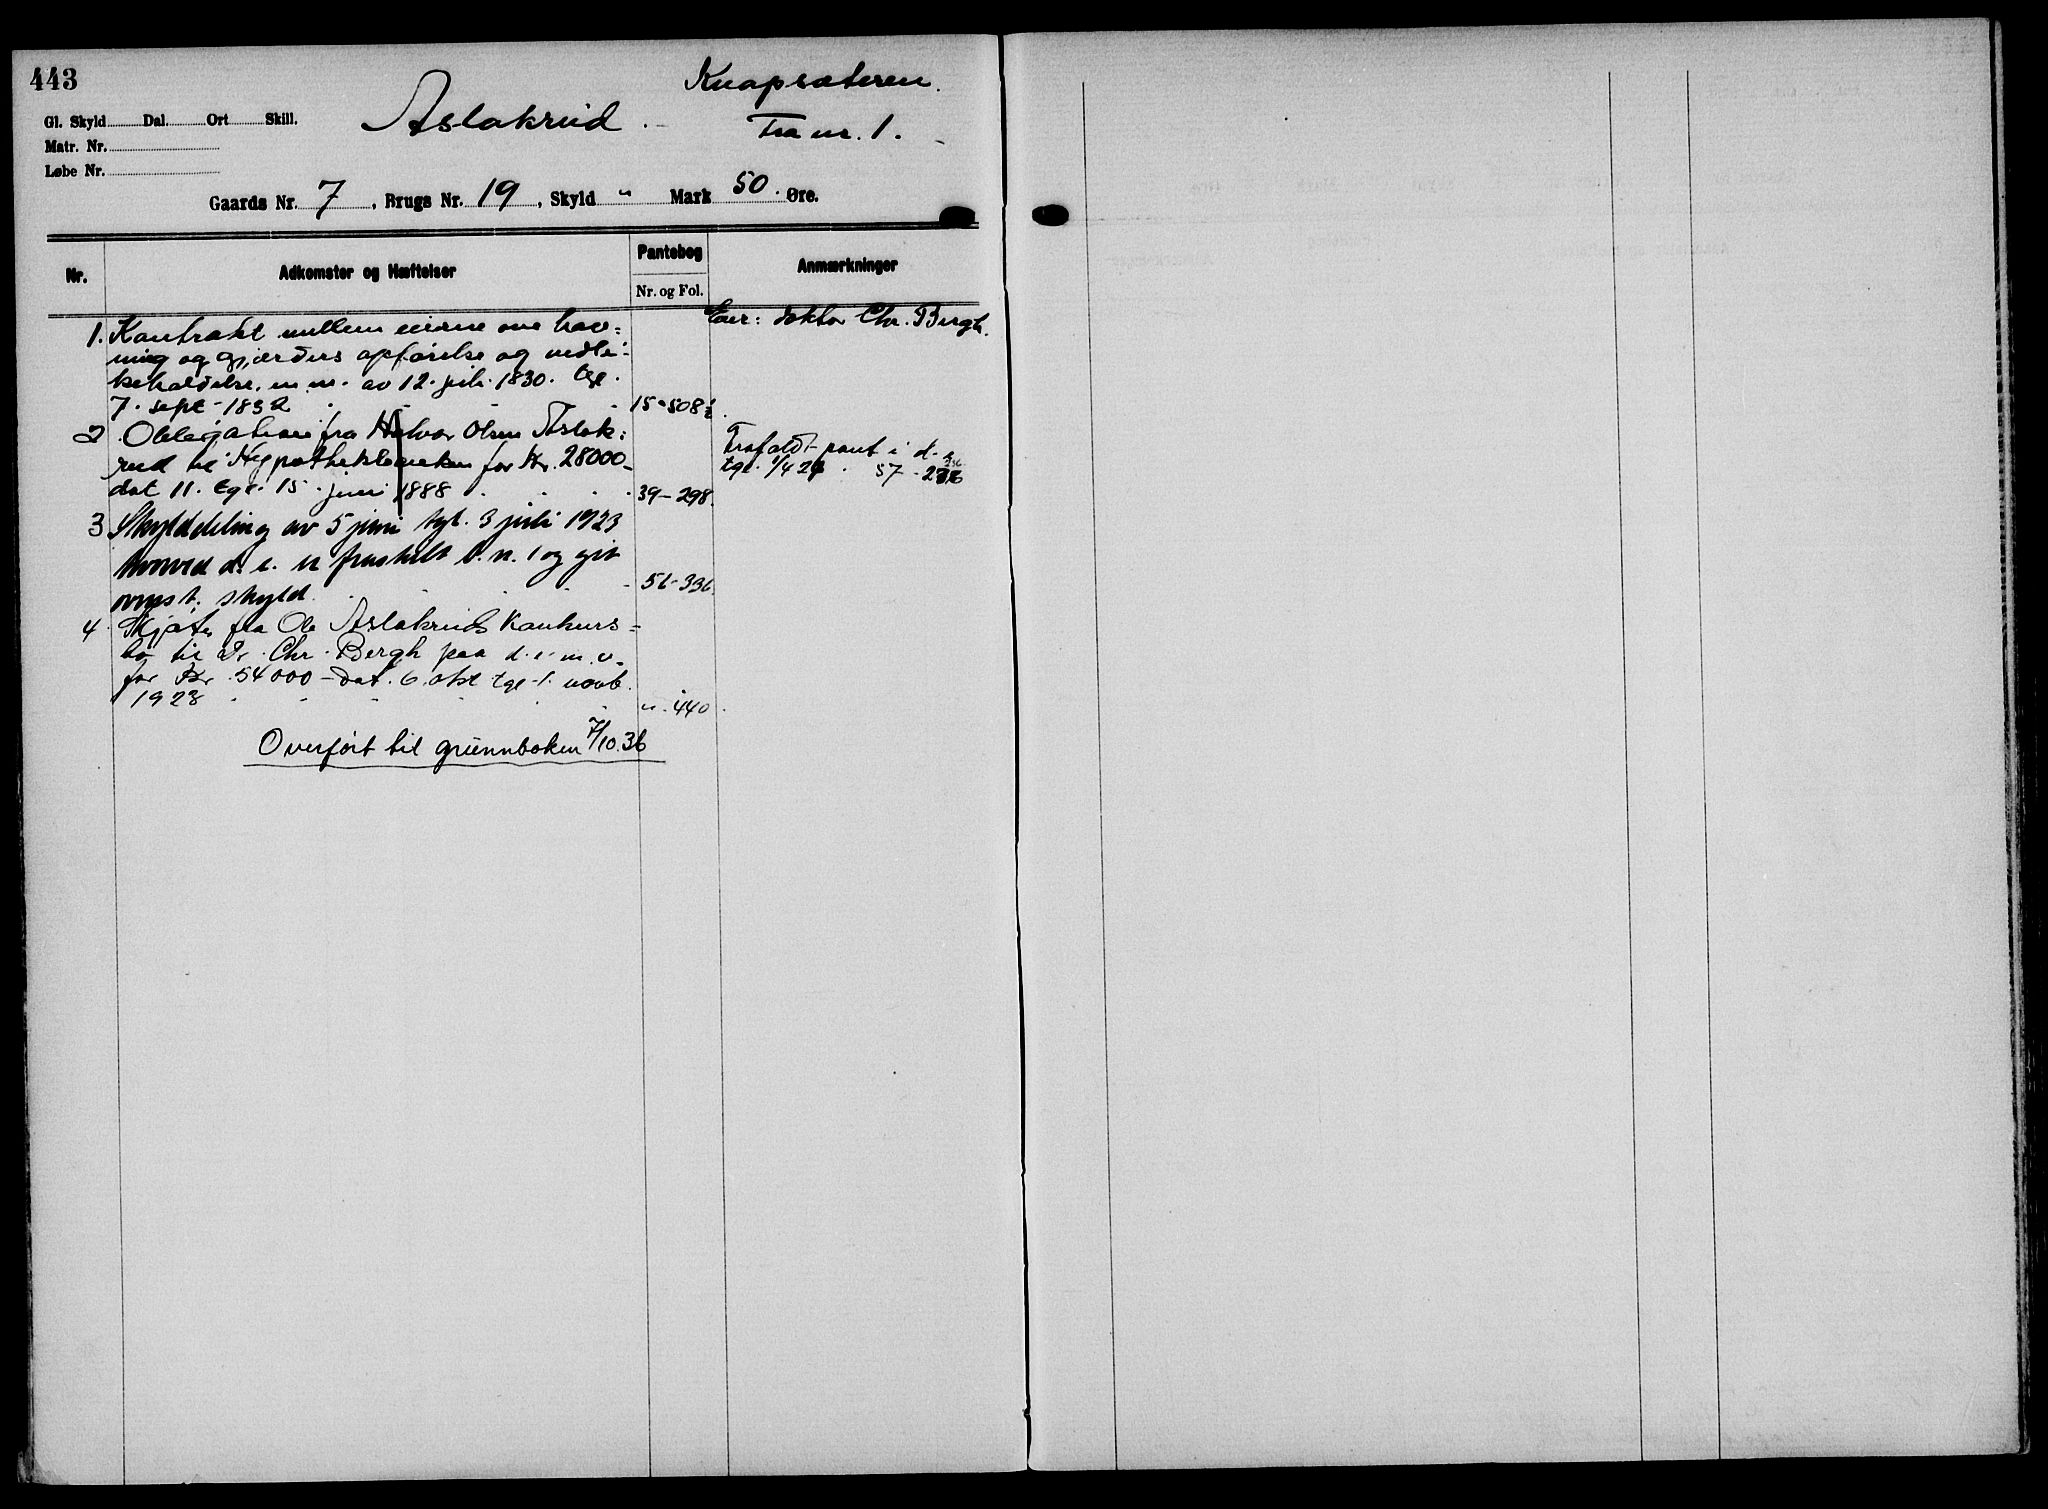 443
Aslakrud.
Knapsæteren.
Fra nr. 1.
Gl. Skyld Dal Ort Skill.
Matr. Nr.
Løbe Nr.
Gaards Nr. 7, Brugs Nr. 19, Skyld " Mark 50 Øre.
Nr. Adkomster og Hæftelser Pantebog Anmærkninger
Nr. og Fol.
Eier: doktor Chr. Bergh.
1. Kontrakt mellem eierne om hav=
ning og gjærders opførelse og vedli-
keholdelse m m. av 12. juli 1830. tgl.
7. sept- 1832 15-508½.
2 Obligation fra Halvor Olsen Aslak=
rud til Hypothekbanken for Kr. 28000-
dat 11. tgl. 15. juni 1888 39-298.
Frafaldt pant i d. e.
tgl. 57-
3 Skylddeling av 5 juni tgl. 3 juli 1923
hvorved d. e. er fraskilt b. n. 1 og git
ovenst. skyld. 56-336.
4. Skjøte fra Ole Aslakruds konkurs=
bo til Dr. Chr. Bergh paa d. e. m. v.
for Kr. 54000- dat. 6. okt tgl. 1. novb.
1923 " 440.
Overført til grunnboken 7/10.36